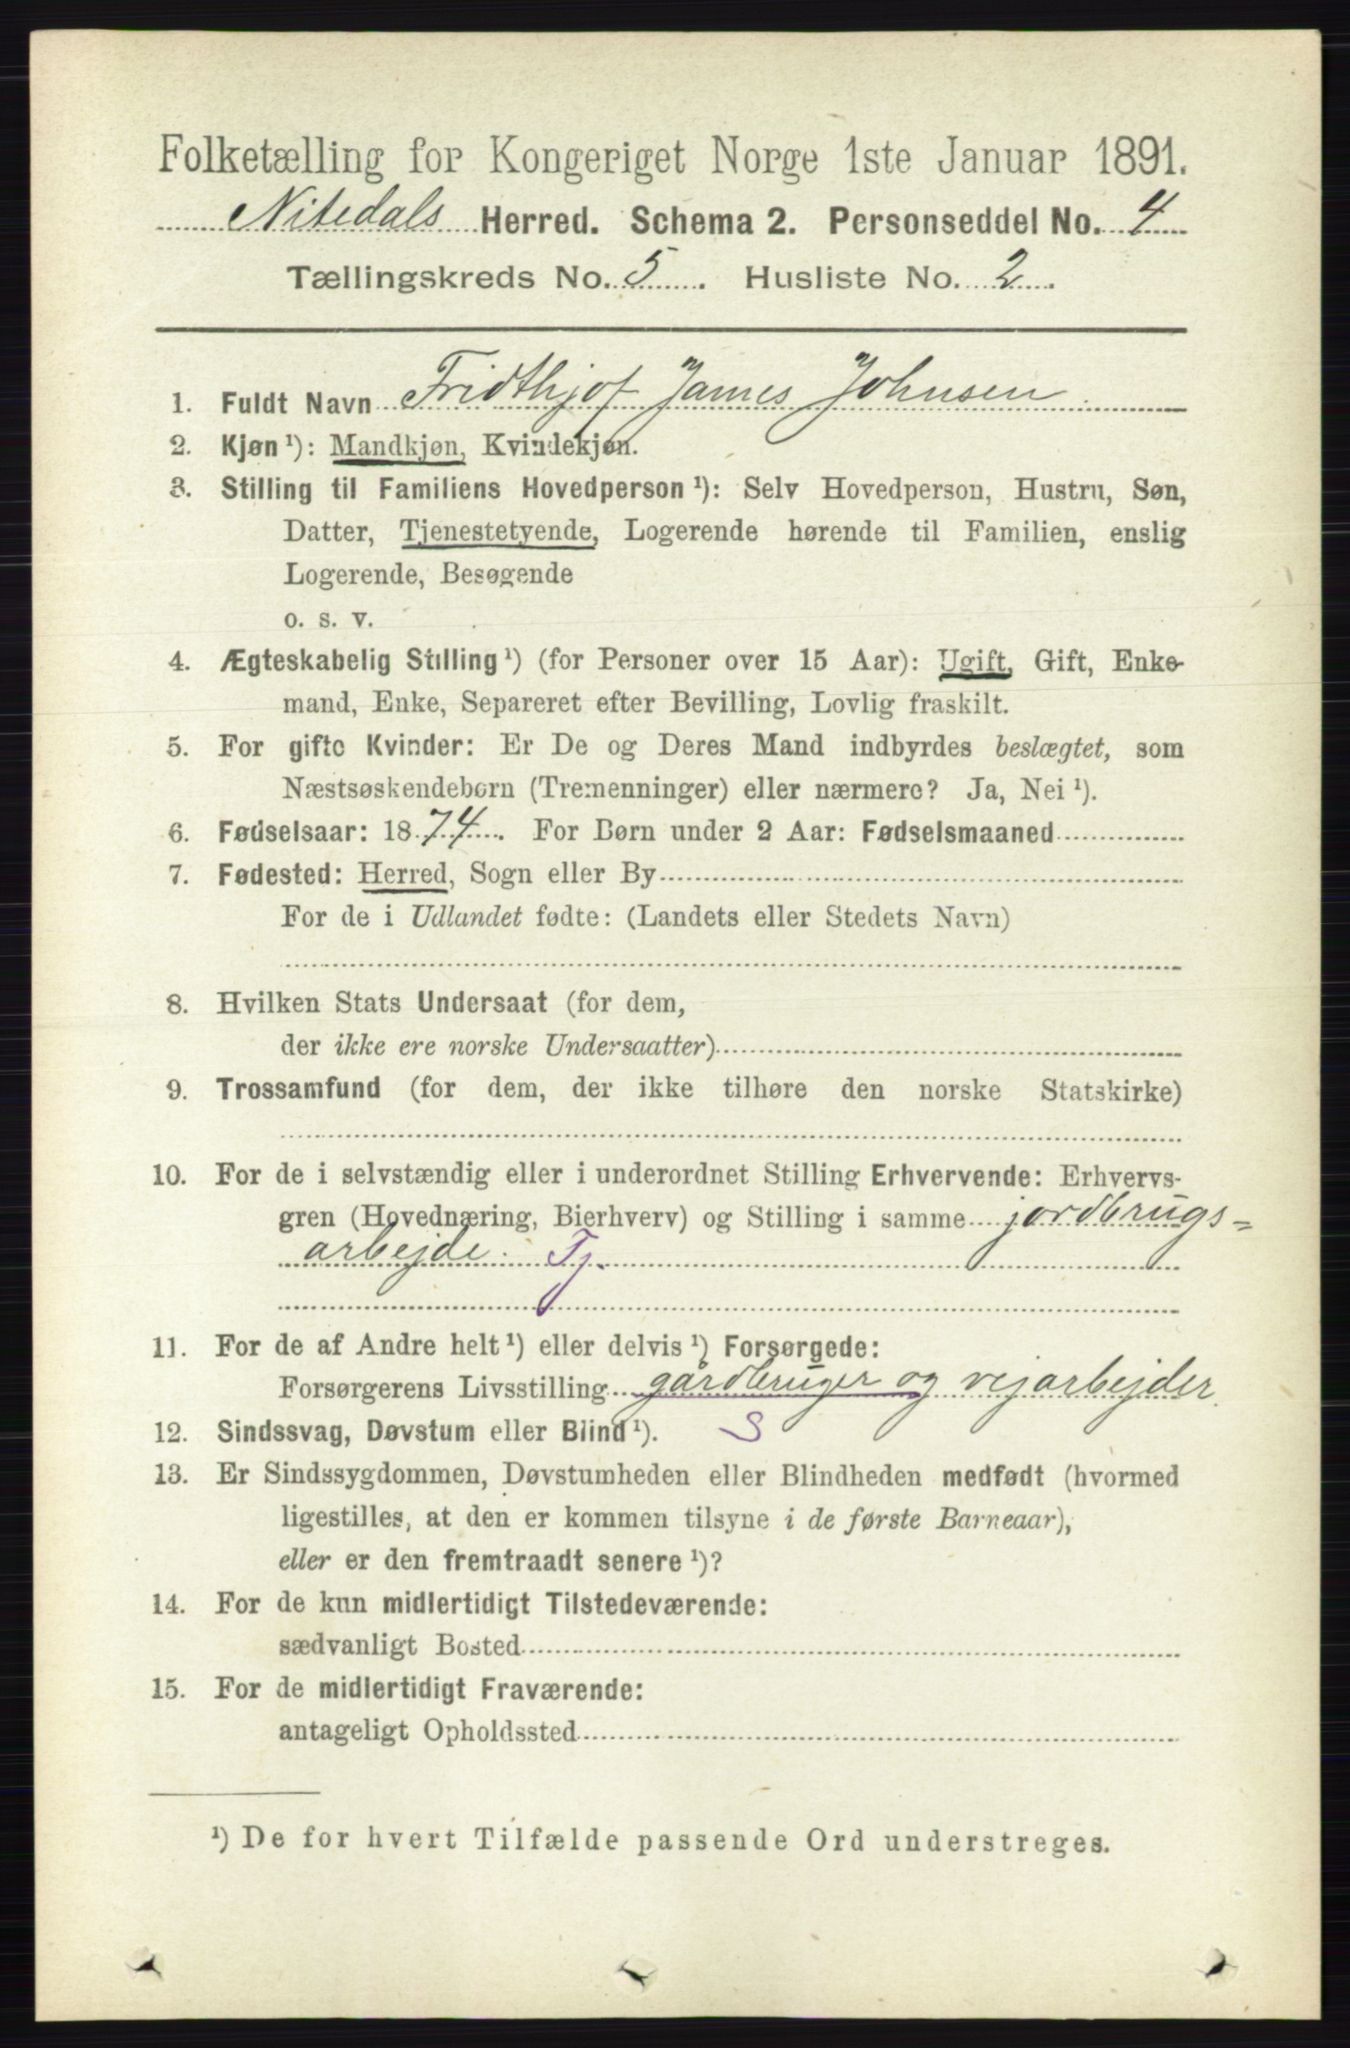 Folketælling for Kongeriget Norge 1ste Januar 1891.
Nitedals Herred. Schema 2. Personseddel No. 4
Tællingskreds No. 5. Husliste No. 2.
1. Fuldt Navn Fridthjof James Johnsen
2. Kjøn¹): Mandkjøn, Kvindekjøn.
3. Stilling til Familiens Hovedperson¹): Selv Hovedperson, Hustru, Søn,
Datter, Tjenestetyende, Logerende hørende til Familien, enslig
Logerende, Besøgende
o. s. v.
4. Ægteskabelig Stilling¹) (for Personer over 15 Aar): Ugift, Gift, Enke-
mand, Enke, Separeret efter Bevilling, Lovlig fraskilt.
5. For gifte Kvinder: Er De og Deres Mand indbyrdes beslægtet, som
Næstsøskendebørn (Tremenninger) eller nærmere? Ja, Nei¹).
6. Fødselsaar: 1874. For Børn under 2 Aar: Fødselsmaaned
7. Fødested: Herred, Sogn eller By
For de i Udlandet fødte: (Landets eller Stedets Navn)
8. Hvilken Stats Undersaat (for dem,
der ikke ere norske Undersaatter)
9. Trossamfund (for dem, der ikke tilhøre den norske Statskirke)
10. For de i selvstændig eller i underordnet Stilling Erhvervende: Erhvervs-
gren (Hovednæring, Bierhverv) og Stilling i samme jordbrugs=
arbejde. Tj.
11. For de af Andre helt¹) eller delvis¹) Forsørgede:
Forsørgerens Livsstilling gårdbruger og vejarbejder.
12. Sindssvag, Døvstum eller Blind¹). S
13. Er Sindssygdommen, Døvstumheden eller Blindheden medfødt (hvormed
ligestilles, at den er kommen tilsyne i de første Barneaar),
eller er den fremtraadt senere¹)?
14. For de kun midlertidigt Tilstedeværende:
sædvanligt Bosted
15. For de midlertidigt Fraværende:
antageligt Opholdssted
¹) De for hvert Tilfælde passende Ord understreges.